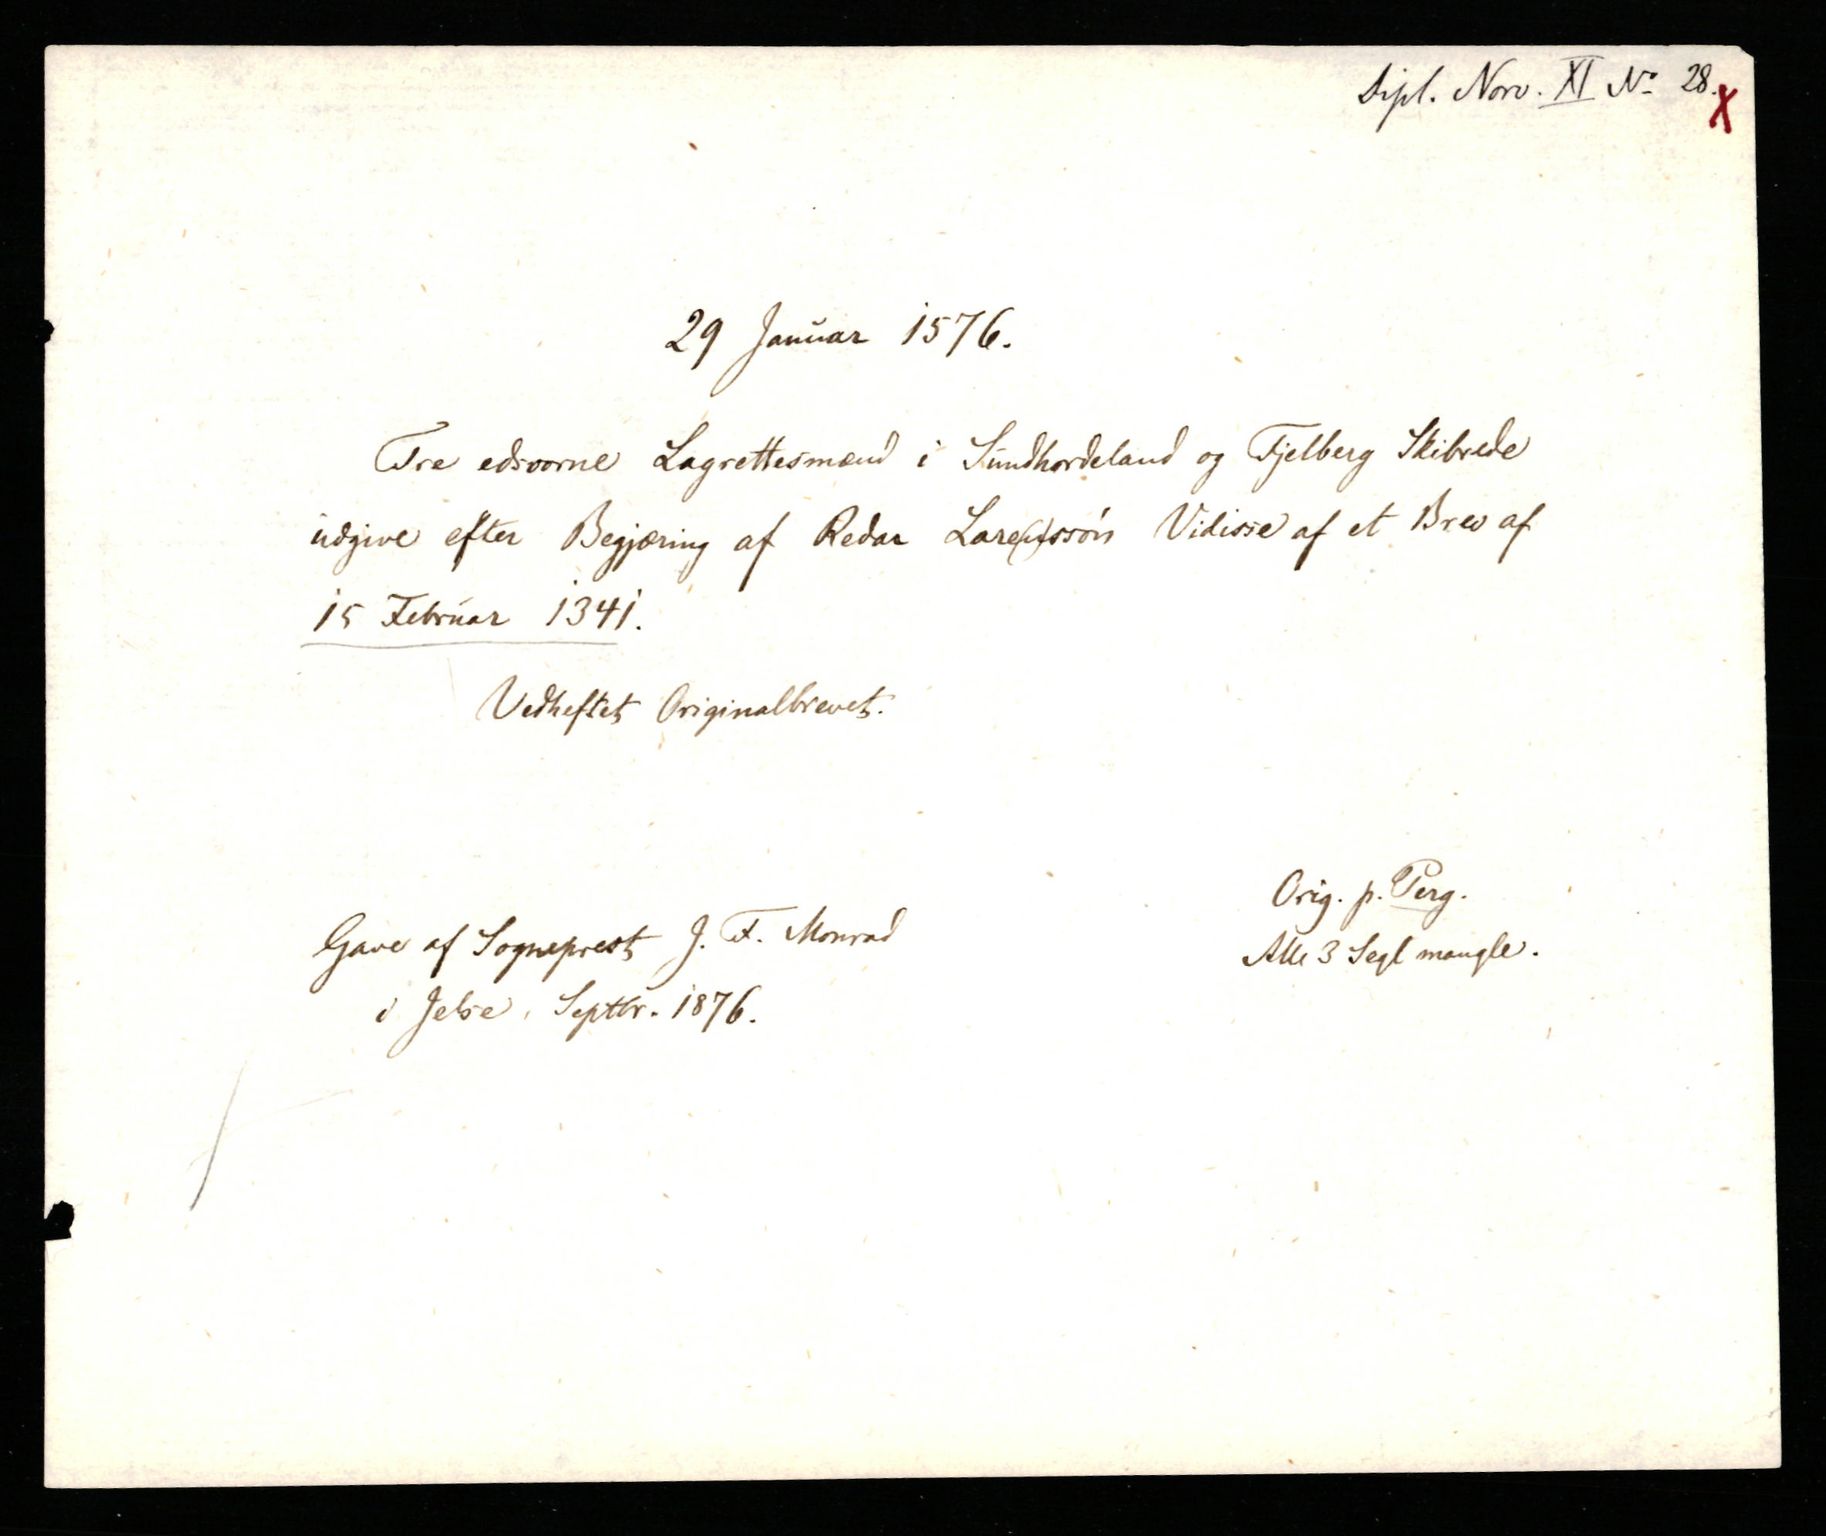 Dipl. Norv. XI No 28. X
29 Januar 1576.
Tre edsvorne Lagrettesmænd i Sundhordeland og Fjelberg Skibrede
udgive efter Begjæring af Redar Lare(n)ssøn Vidisse af et Brev af
15 Februar 1341.
Vedheftet Originalbrevet.
Orig. p. Perg.
Alle 3 Segl mangle.
Gave af Sogneprest J. F. Monrad
i Jelse, Septbr. 1876.